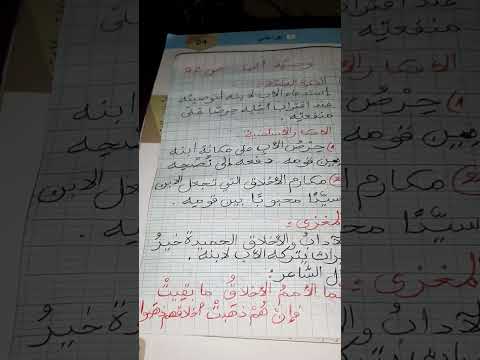 الفكرة العامة:
استدعاء الأب لابنه لتوصيته
عند اقتراب أجله حرصا على
منفعته.
الأفكار الأساسية:
① حرْصُ الأب على مكانة ابنه
بين قومه دفعه إلى نُصْحِه
② مكارم الأخلاق التي تجعل الابن
سيّدًا محبوبًا بين قومه.
المغزى:
الآدابُ والأخلاق الحميدة خيرُ
يتركه الأب لابنه.
الشاعر:
الأممُ الأخلاقُ ما بقِيتْ
فإن هُمُ ذهبتْ أخلاقهم ذهبوا